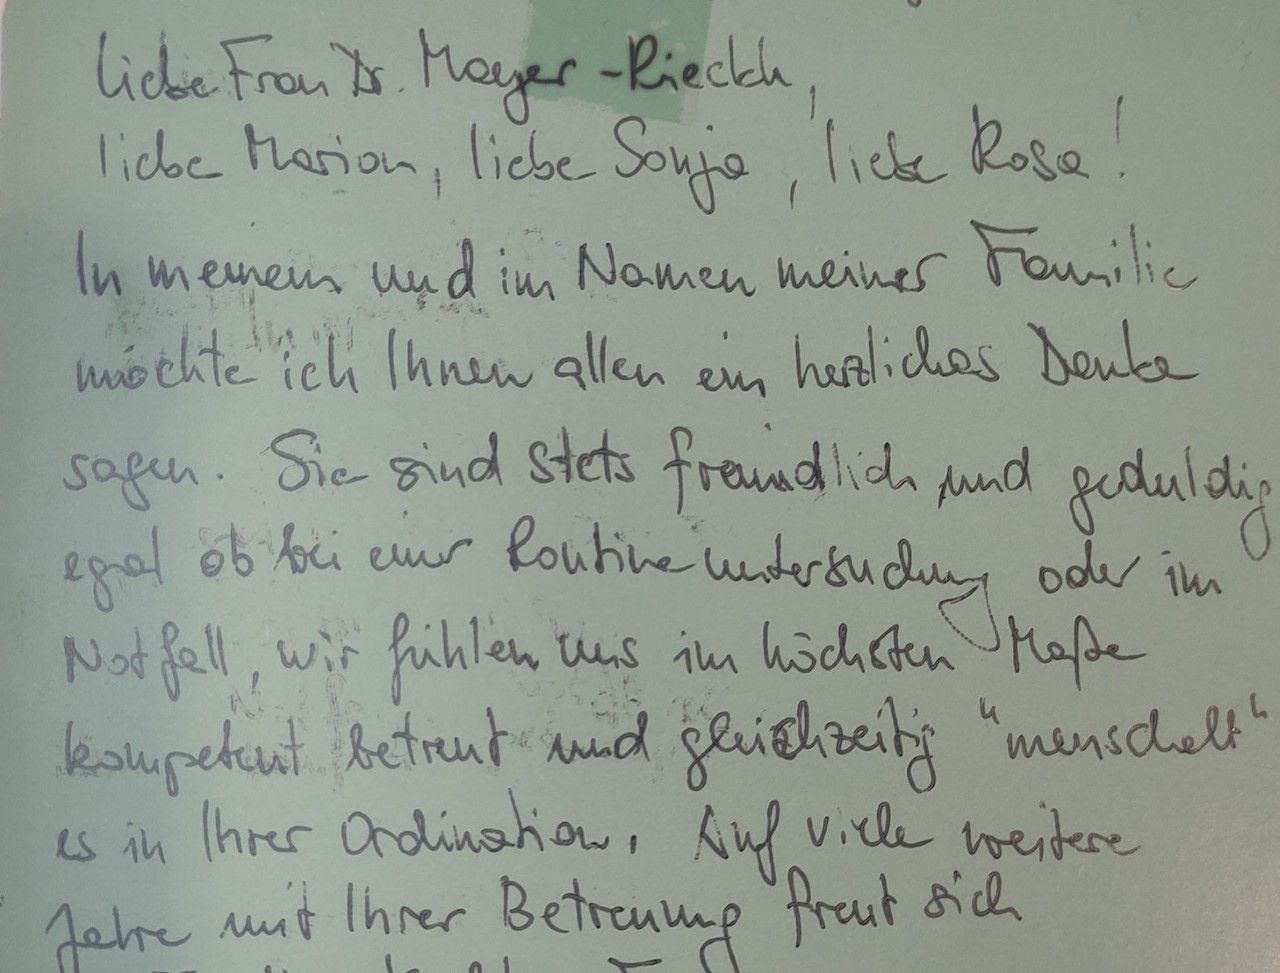 liebe Frau Dr. Mayer-Rieckh,
liebe Marion, liebe Sonja, liebe Rosa!
In meinem und im Namen meiner Familie
möchte ich Ihnen allen ein herzliches Danke
sagen. Sie sind stets freundlich und geduldig
egal ob bei einer Routineuntersuchung oder im
Notfall, wir fühlen uns im höchsten Maße
kompetent betreut und gleichzeitig "menschelt"
es in Ihrer Ordination. Auf viele weitere
Jahre mit Ihrer Betreuung freut sich